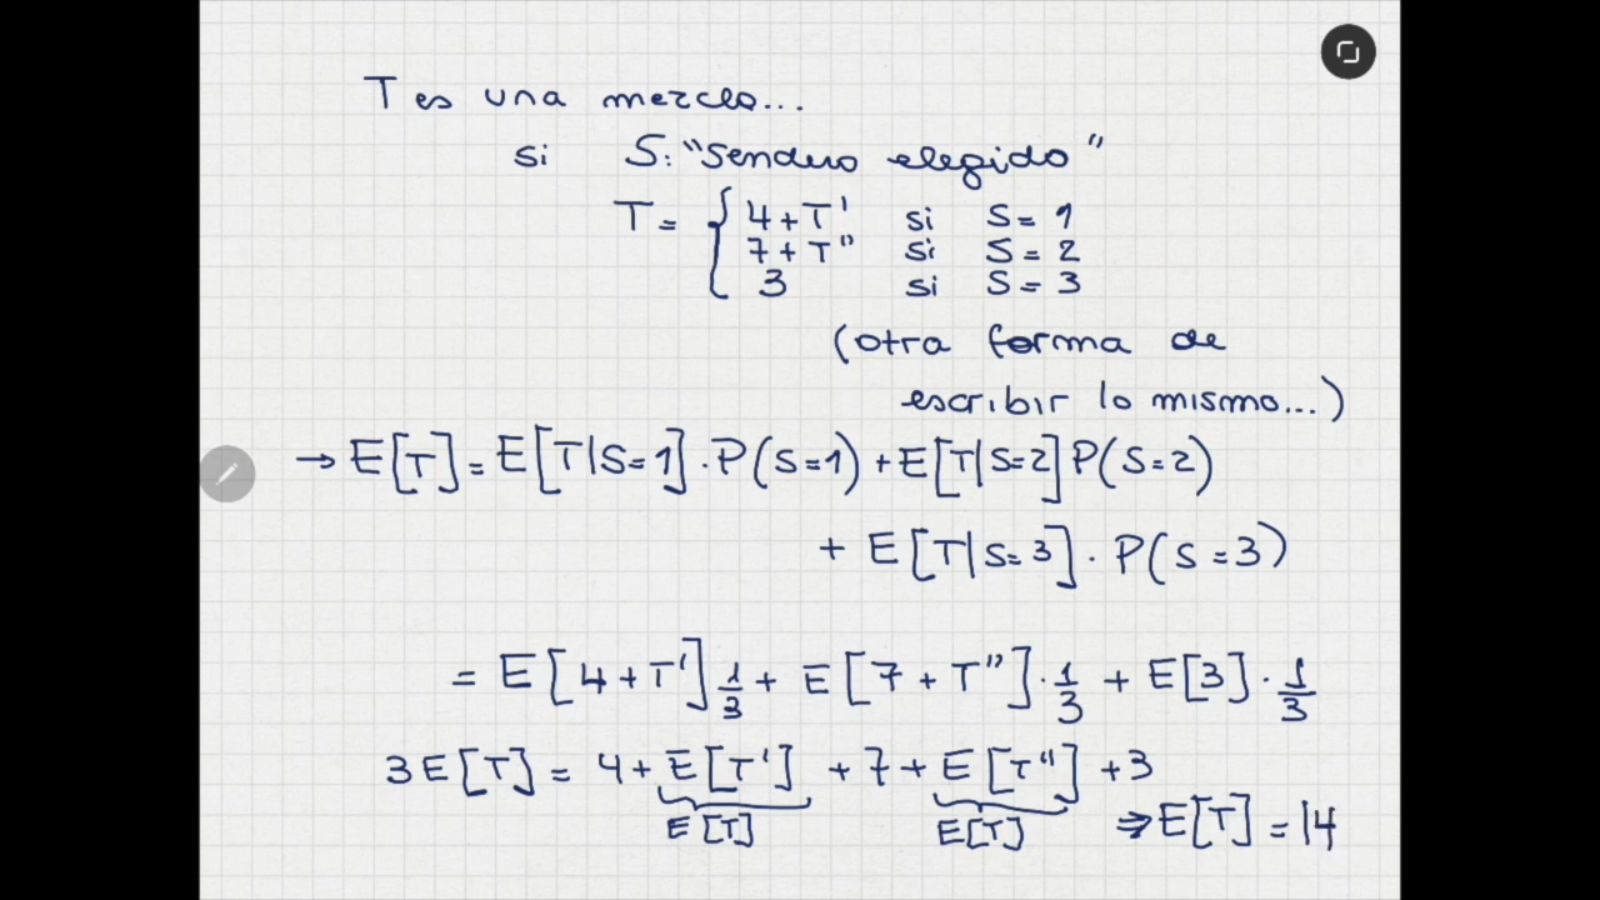 T es una mezcla...
si S: "Sendero elegido"
T = { 4 + T' si S = 1
7 + T" si S = 2
3 si S = 3
(otra forma de
escribir lo mismo...)
→ E[T] = E[T|S=1] . P(S=1) + E[T|S=2] P(S=2)
+ E[T|S=3] . P(S=3)
= E[4 + T'] 1/3 + E[7 + T"] . 1/3 + E[3] . 1/3
3E[T] = 4 + E[T'] + 7 + E[T"] + 3
E[T] E[T] ⇒ E[T] = 14